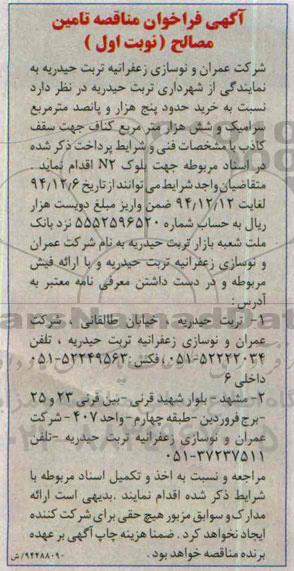 آگهی فراخوان مناقصه تامین
مصالح ( نوبت اول )
شرکت عمران و نوسازی زعفرانیه تربت حیدریه به
نمایندگی از شهرداری تربت حیدریه در نظر دارد
نسبت به خرید حدود پنج هزار و پانصد مترمربع
سرامیک و شش هزار متر مربع کناف جهت سقف
کاذب با مشخصات فنی و شرایط پرداخت ذکر شده
در اسناد مربوطه جهت بلوک N2 اقدام نماید .
متقاضیان واجد شرایط می توانند از تاریخ ۹۴/۱۲/۶
لغایت ۹۴/۱۲/۱۲ ضمن واریز مبلغ دویست هزار
ریال به حساب شماره ۵۵۵۲۵۹۶۵۲۰ نزد بانک
ملت شعبه بازار تربت حیدریه به نام شرکت عمران
و نوسازی زعفرانیه تربت حیدریه و با ارائه فیش
مربوطه و در دست داشتن معرفی نامه معتبر به
آدرس:
۱- تربت حیدریه ، خیابان طالقانی ، شرکت
عمران و نوسازی زعفرانیه تربت حیدریه ، تلفن
۰۵۱-۵۲۲۲۲۰۳۴، فکس: ۵۲۲۴۹۵۶۳-۰۵۱
داخلی ۶
۲- مشهد- بلوار شهید قرنی -بین قرنی ۲۳ و ۲۵
-برج فروردین -طبقه چهارم -واحد ۴۰۷- شرکت
عمران و نوسازی زعفرانیه تربت حیدریه -تلفن
۰۵۱-۳۷۲۳۷۵۱۱
مراجعه و نسبت به اخذ و تکمیل اسناد مربوطه با
شرایط ذکر شده اقدام نمایند .بدیهی است ارائه
مدارک و سوابق مزبور هیچ حقی برای شرکت کننده
ایجاد نخواهد کرد . ضمنا هزینه چاپ آگهی بر عهده
برنده مناقصه خواهد بود .
۹۴۴۸۸۰۹۰/ش